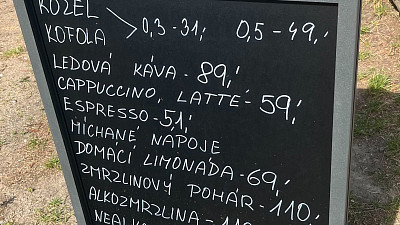 KOZEL
KOFOLA 0,3-31,- 0,5-49,-
LEDOVÁ KÁVA-89,-
CAPPUCCINO, LATTÉ-59,-
ESPRESSO-51,-
MÍCHANÉ NÁPOJE
DOMÁCÍ LIMONÁDA-69,-
ZMRZLINOVÝ POHÁR-110,-
ALKOZMRZLINA-